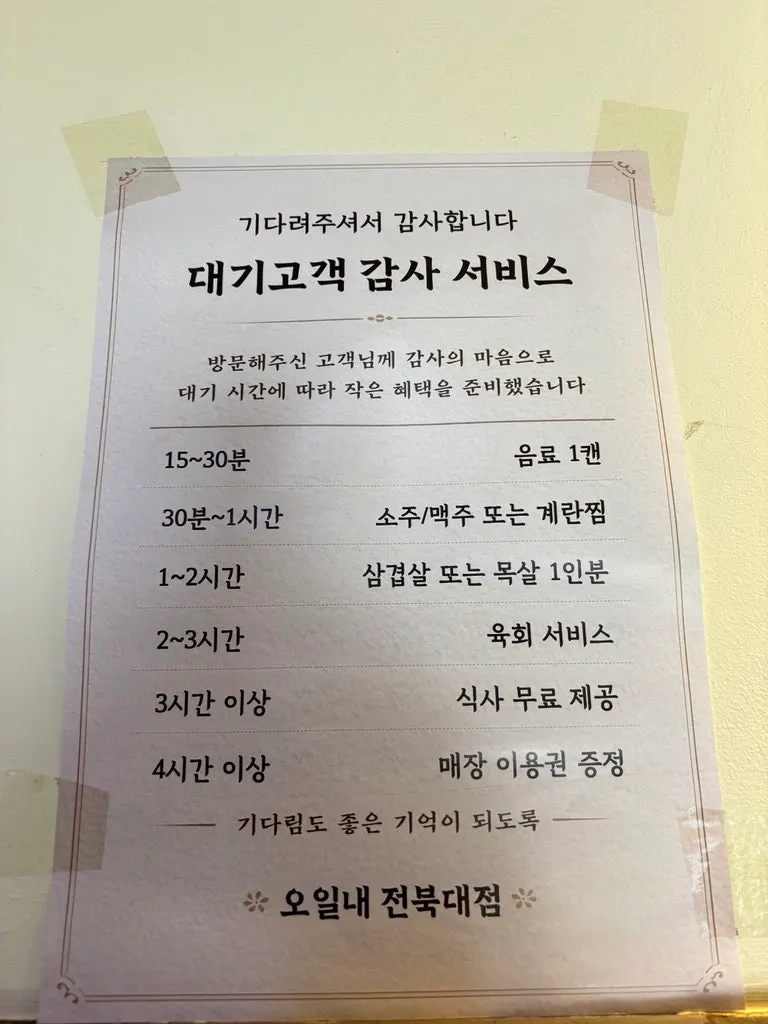 기다려주셔서 감사합니다
대기고객 감사 서비스
방문해주신 고객님께 감사의 마음으로
대기 시간에 따라 작은 혜택을 준비했습니다
15~30분 음료 1캔
30분~1시간 소주/맥주 또는 계란찜
1~2시간 삼겹살 또는 목살 1인분
2~3시간 육회 서비스
3시간 이상 식사 무료 제공
4시간 이상 매장 이용권 증정
기다림도 좋은 기억이 되도록
오일내 전북대점